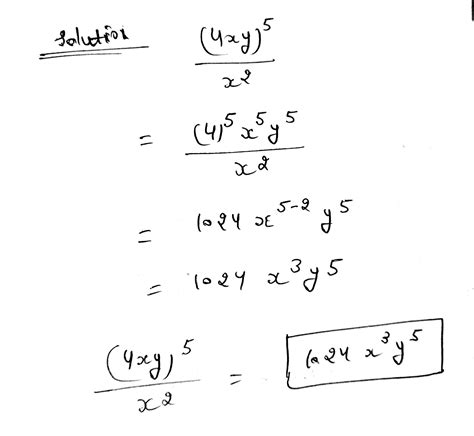 Solution (4xy)^5 / x^2
= (4)^5 x^5 y^5 / x^2
= 1024 x^{5-2} y^5
= 1024 x^3 y^5
(4xy)^5 / x^2 = 1024 x^3 y^5